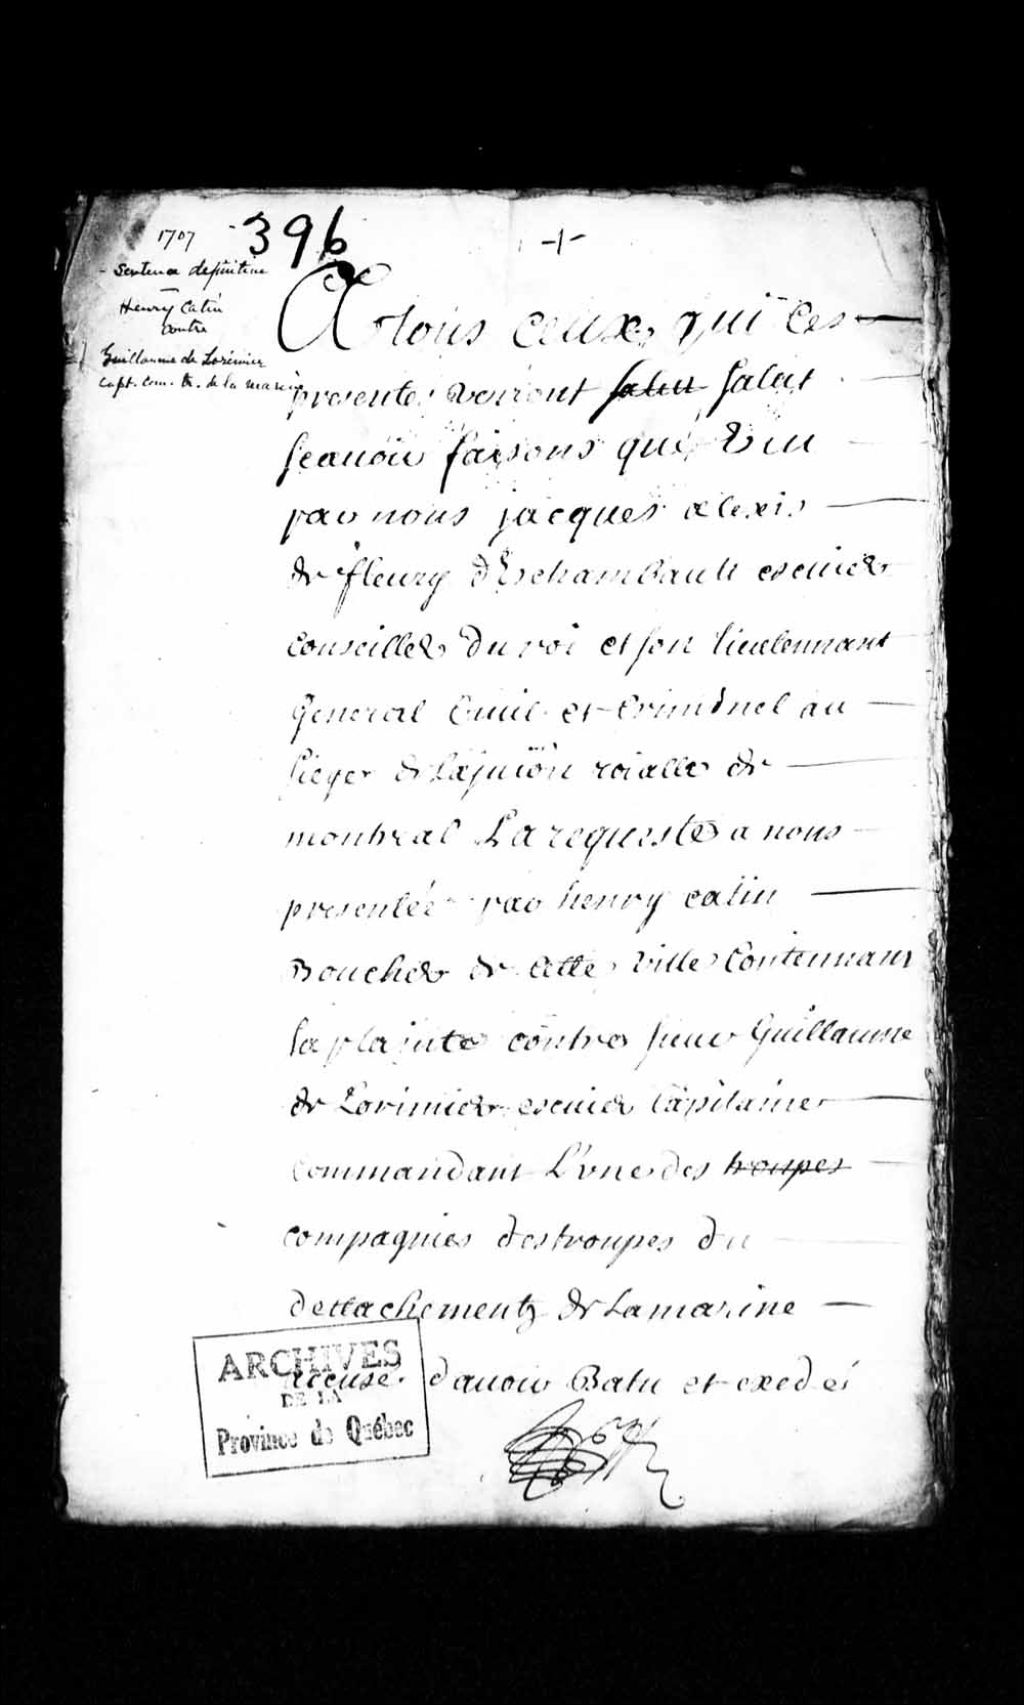 1707
396
-1-
Sentence definitive
Henry Catin
contre
Guillaume de Lorimier
Capt. Com. tr. de la marine
A tous ceux qui ces
presentes verront salut salut
scauoir faisons que Veu
par nous jacques alexis
de fleury dEschambault escuier
conseiller du roi et son lieutennant
General Ciuil et Criminel au
siege de la juion roialle de
montreal La requeste a nous
presentée par henry catin
Boucher de cette ville Contennant
sa plainte contre sieur Guillaume
de Lorimier escuier Capitaine
Commandant L'vne des troupes
compagnies des troupes du
dettachement de La marine
accusé dauoir Batu et exedé
ARCHIVES
DE LA
Province de Québec